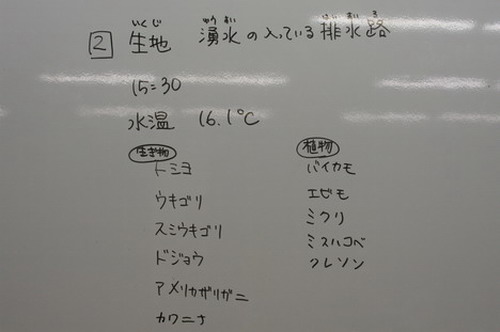 2 生地 湧水の入っている排水路
いくじ ゆうすい はいすいろ
15:30
水温 16.1℃
生き物
トミヨ
ウキゴリ
スミウキゴリ
ドジョウ
アメリカザリガニ
カワニナ
植物
バイカモ
エビモ
ミクリ
ミズハコベ
クレソン